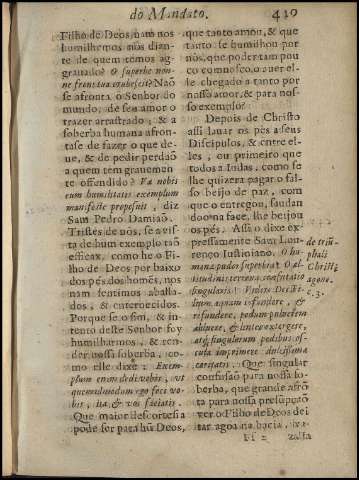 do Mandato. 439
Filho de Deos, nam nos
humilhemos nòs dian-
te de quem temos ag-
gravado? O superbe non-
ne frons tua erubescit? Naõ
se afronta o Senhor do
mundo, de seu amor o
trazer arrastado; & a
soberba humana afron-
tase de fazer o que de-
ve, & de pedir perdaõ
a quem tem gravemen-
te offendido? Væ nobis
cum humilitatis exemplum
manifeste proposuit, diz
Sam Pedro Damiaõ.
Tristes de nòs, se a vis-
ta de hum exemplo taõ
efficax, como he o Fi-
lho de Deos por baixo
dos pès dos homẽs, nos
nam sentimos aballa-
dos, & enternecidos.
Porque se o fim, & in-
tento deste Senhor foy
humilharnos, & ren-
der nossa soberba, co-
mo elle dixe: Exem-
plum enim dedi vobis, ut
quemadmodum ego feci vo-
bis, ita & vos faciatis.
Que maior descortesia
pode ser para hũ Deos,
que tanto amou, & que
tanto se humilhou por
nòs, que poder tam pou
co comnosco, o aver el-
le chegado a tanto por
nosso amor, & para nos-
so exemplo?
Depois de Christo
assi lavar os pès a seus
Discipulos, & entre el-
les, ou primeiro que
todos a Iudas, como se
lhe quizera pagar o fal-
so beijo de paz, com
que o entregou, saudan
doo na face, lhe beijou
os pès. Assi o dixe ex-
pressamente Sam Lou-
renço Iustiniano. O hu-
mana pudor superbia! O al-
titudinis
singularis! Videre Dei Fi-
lium aquam infundere, &
refundere, pedum pulverem
abluere, & linteo extergere,
atq; singulorum pedibus os-
cula imprimere dulcissima
caritatis. Que singular
confusaõ para nossa so-
berba, que grande afrõta
para nossa presũpçaõ
ver o Filho de Deos dei
tar agoa na bacia,
de triũ-
phali
Christi
agone.
c. 3.
Fi 2